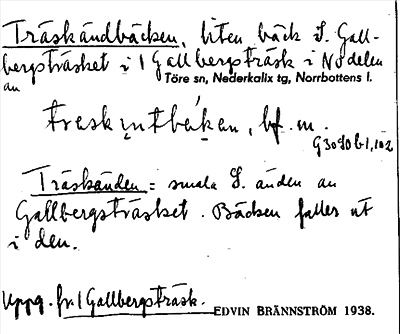 Träskändbäcken, liten bäck S. Gall-
bergsträsket i 1 Gallbergsträsk i Nodelen
av Töre sn, Nederkalix tg, Norrbottens l.
bf. m.
Träskänden = smala S. änden av
Gallbergsträsket. Bäcken faller ut
i den.
Uppg. fr. 1 Gallbergsträsk.
EDVIN BRÄNNSTRÖM 1938.